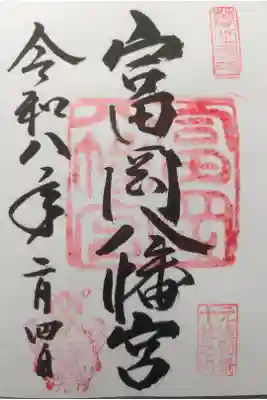 富岡八幡宮
令和八年二月四日